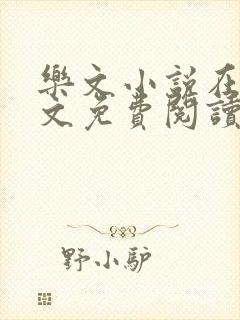 樂文小說在
文免費閱讀
野小驴